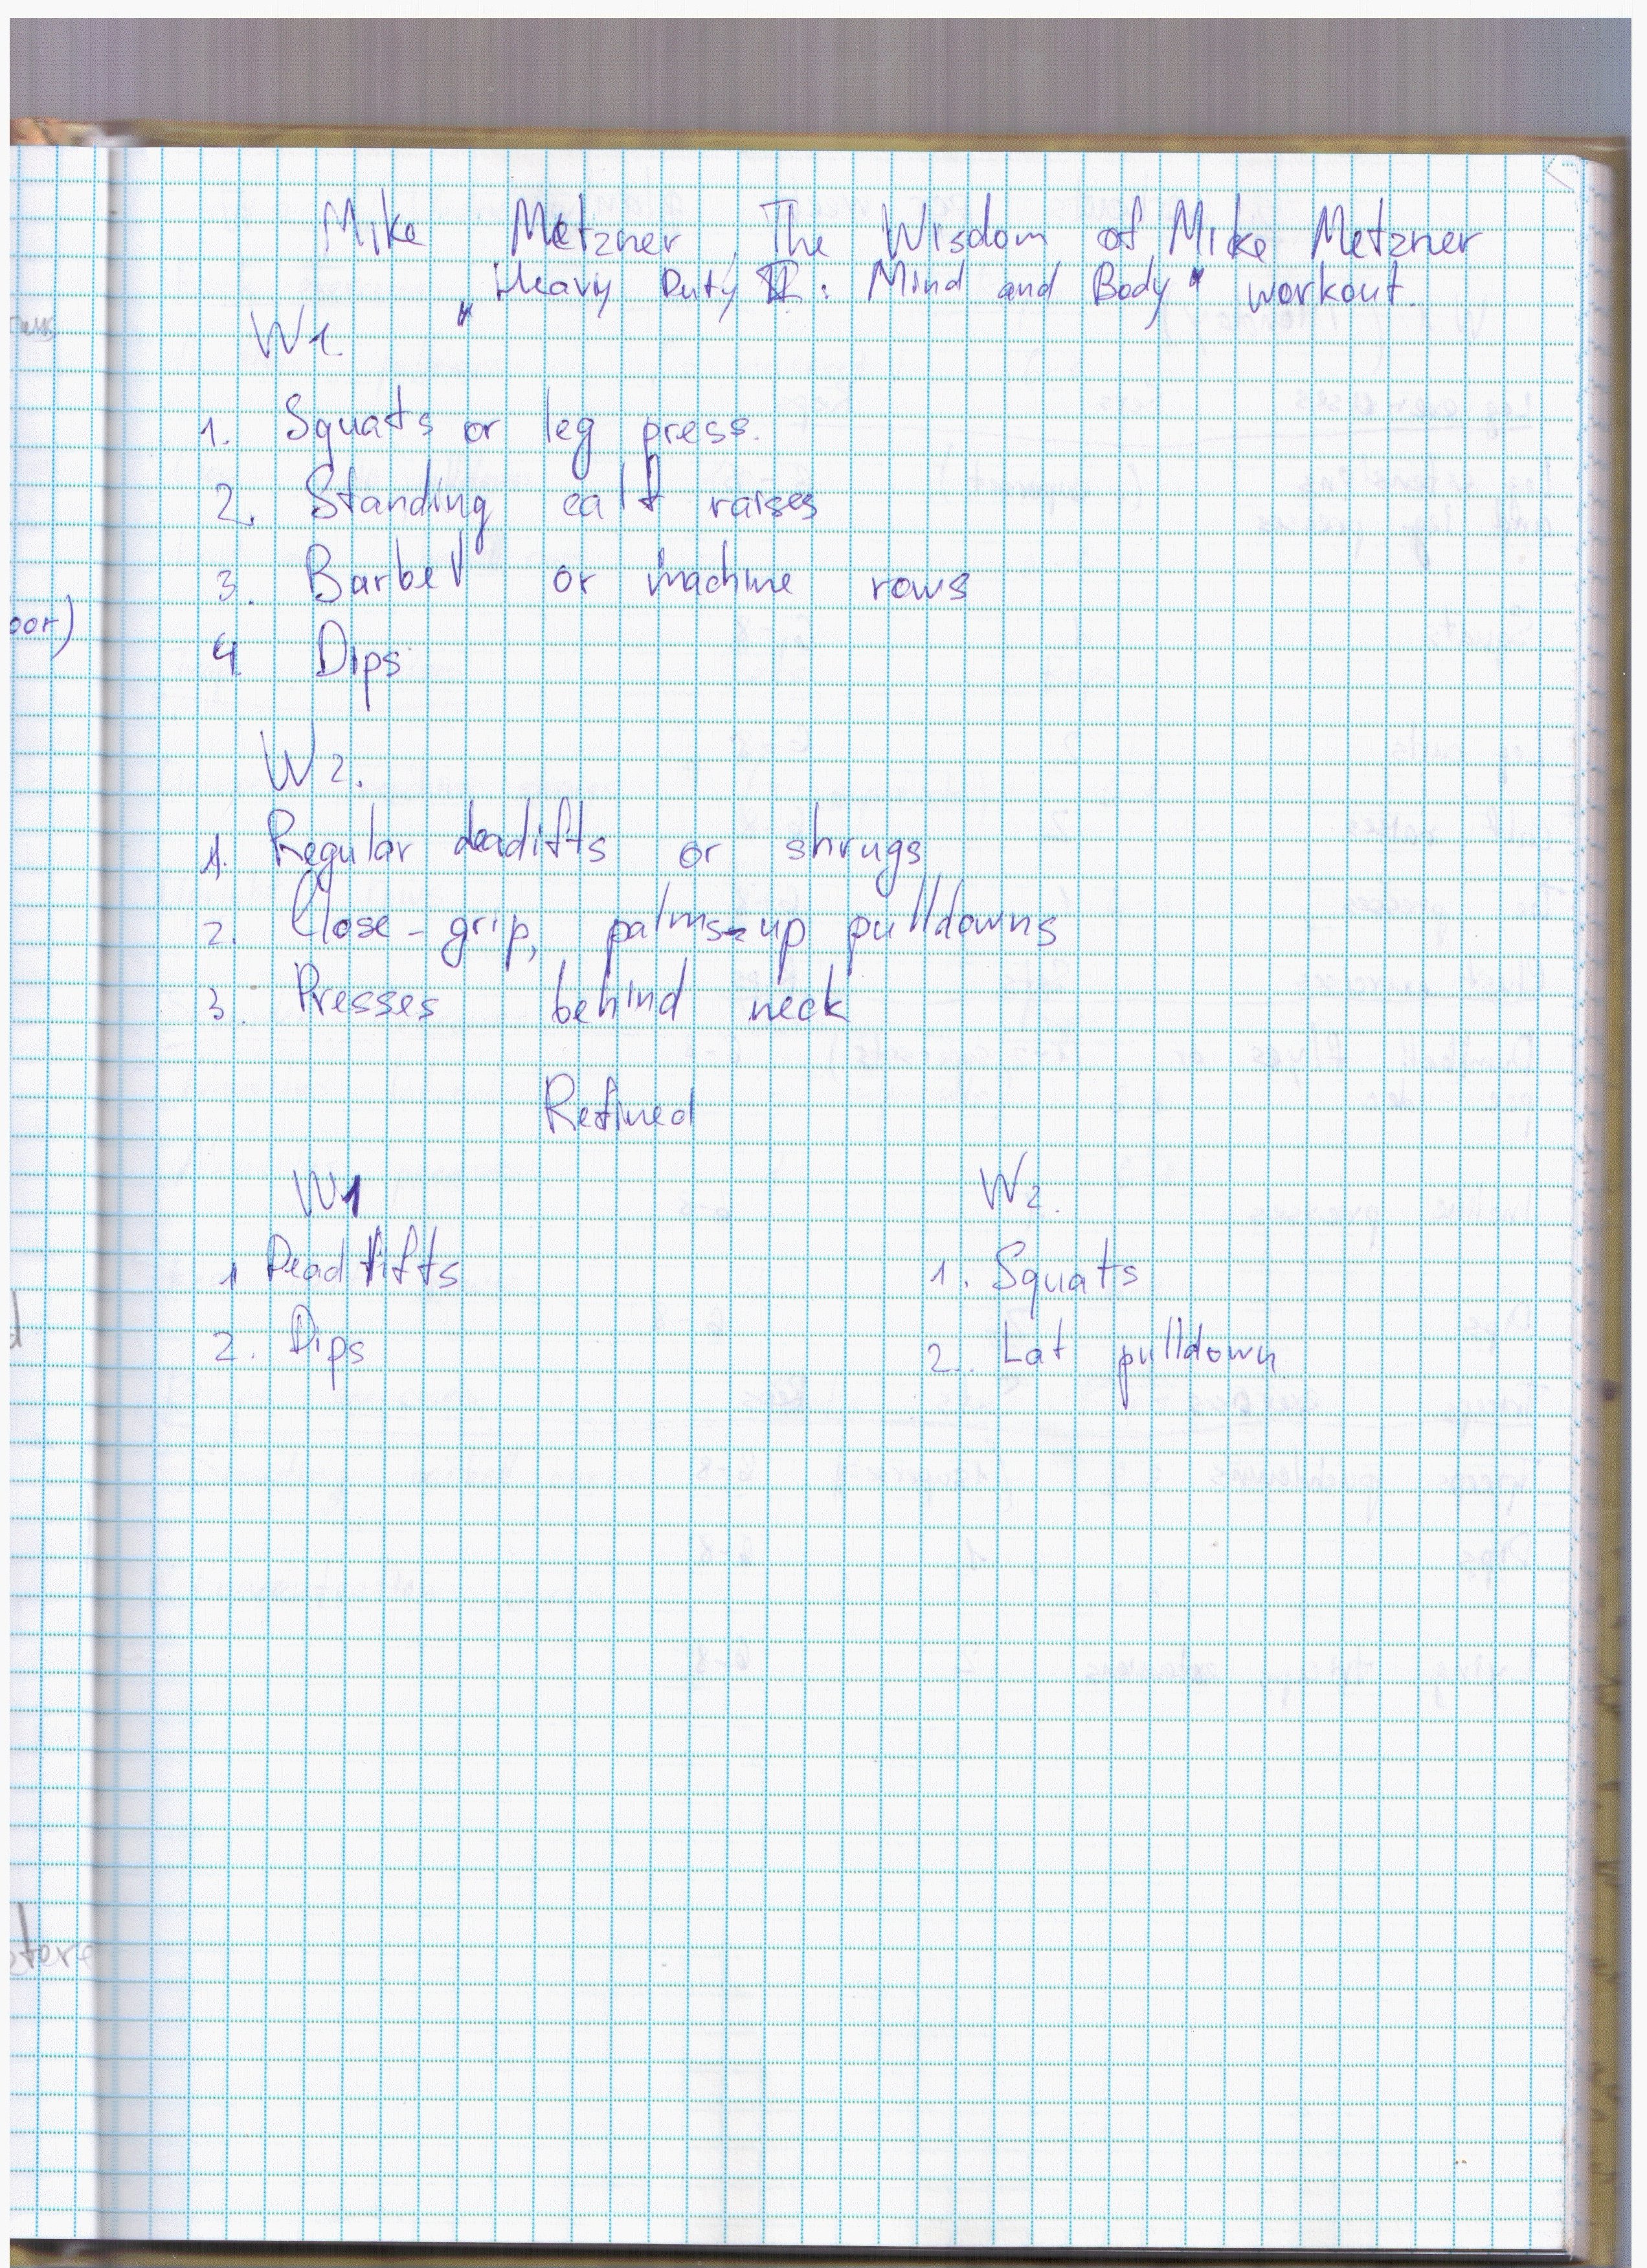 Mike Metzner, The Wisdom of Mike Metzner
„Heavy Duty II: Mind and Body" workout.
W1
1. Squats or leg press.
2. Standing calf raises
3. Barbell or machine rows
4 Dips
W2.
1. Regular deadifts or shrugs
2. Close-grip, palms-up pulldowns
3. Presses behind neck
Refined
W1
1 Deadlifts
2. Dips
W2.
1. Squats
2. Lat pulldown